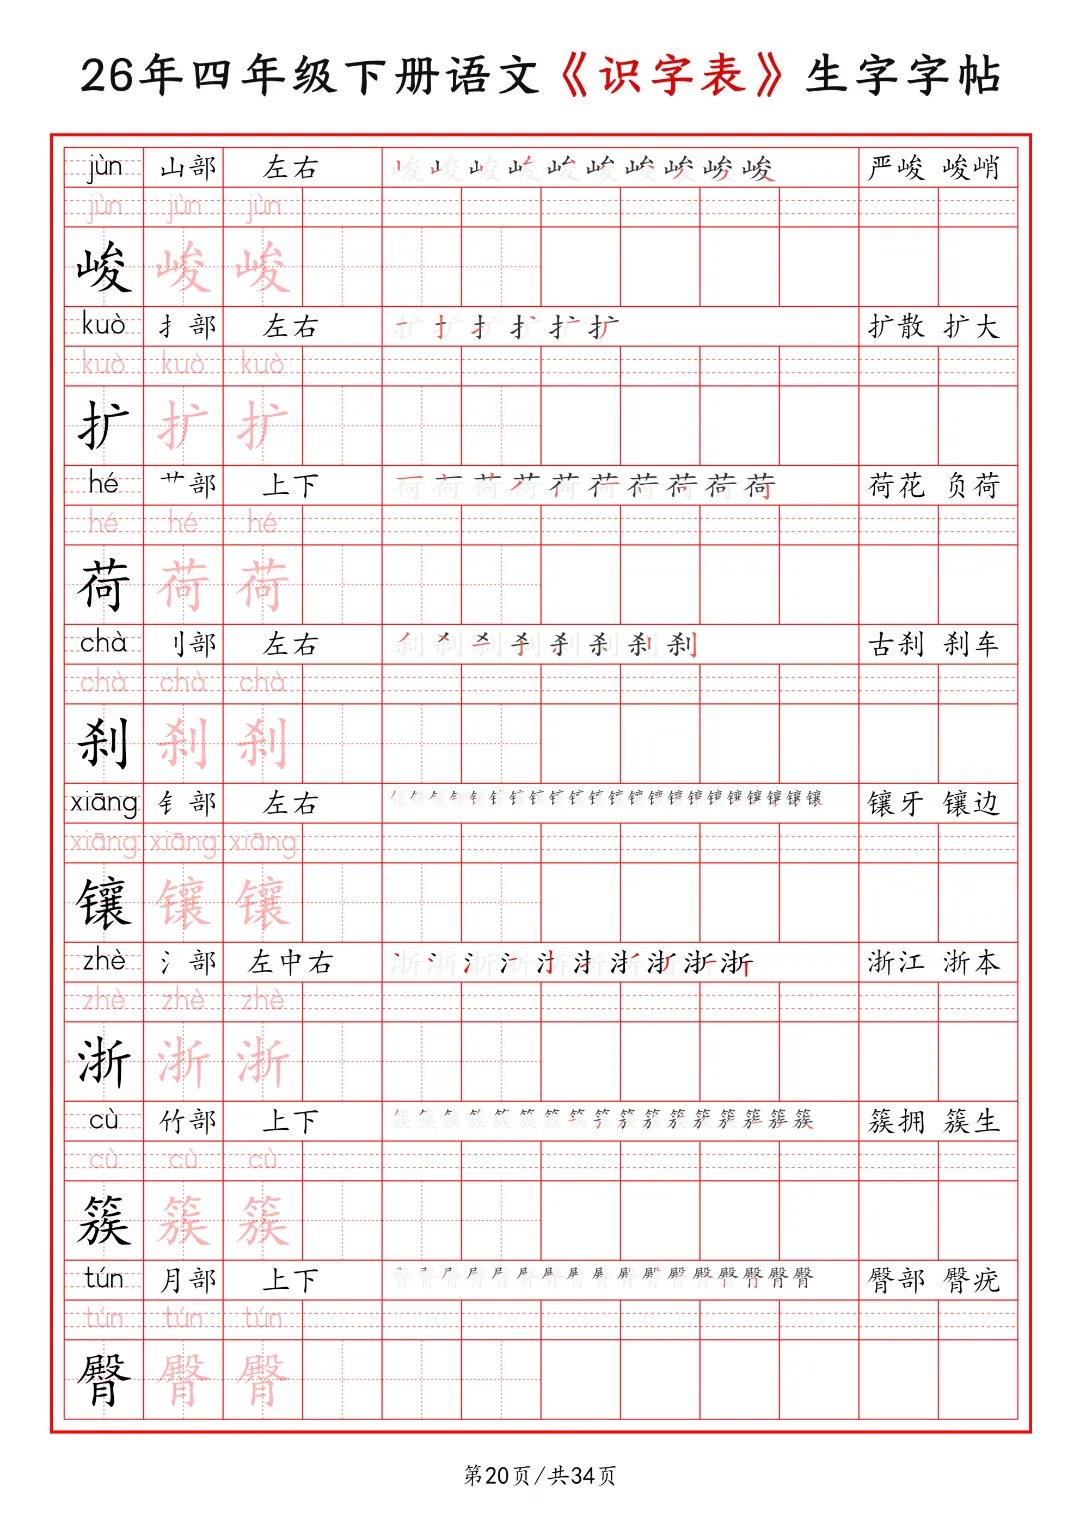 26年四年级下册语文《识字表》生字字帖
jùn 山部 左右 峻峻峻峻峻峻峻峻峻峻 严峻 峻峭
jùn jùn jùn
峻 峻 峻
kuò 扌部 左右 扩扩扩扩扩扩 扩散 扩大
kuò kuò kuò
扩 扩 扩
hé 艹部 上下 荷荷荷荷荷荷荷荷荷荷 荷花 负荷
hé hé hé
荷 荷 荷
chà 刂部 左右 刹刹刹刹刹刹刹刹 古刹 刹车
chà chà chà
刹 刹 刹
xiāng 钅部 左右 镶镶镶镶镶镶镶镶镶镶镶镶镶镶镶镶镶镶镶镶镶镶 镶牙 镶边
xiāng xiāng xiāng
镶 镶 镶
zhè 氵部 左中右 浙浙浙浙浙浙浙浙浙浙 浙江 浙本
zhè zhè zhè
浙 浙 浙
cù 竹部 上下 簇簇簇簇簇簇簇簇簇簇簇簇簇簇簇簇簇 簇拥 簇生
cù cù cù
簇 簇 簇
tún 月部 上下 臀臀臀臀臀臀臀臀臀臀臀臀臀臀臀臀臀 臀部 臀疣
tún tún tún
臀 臀 臀
第20页/共34页